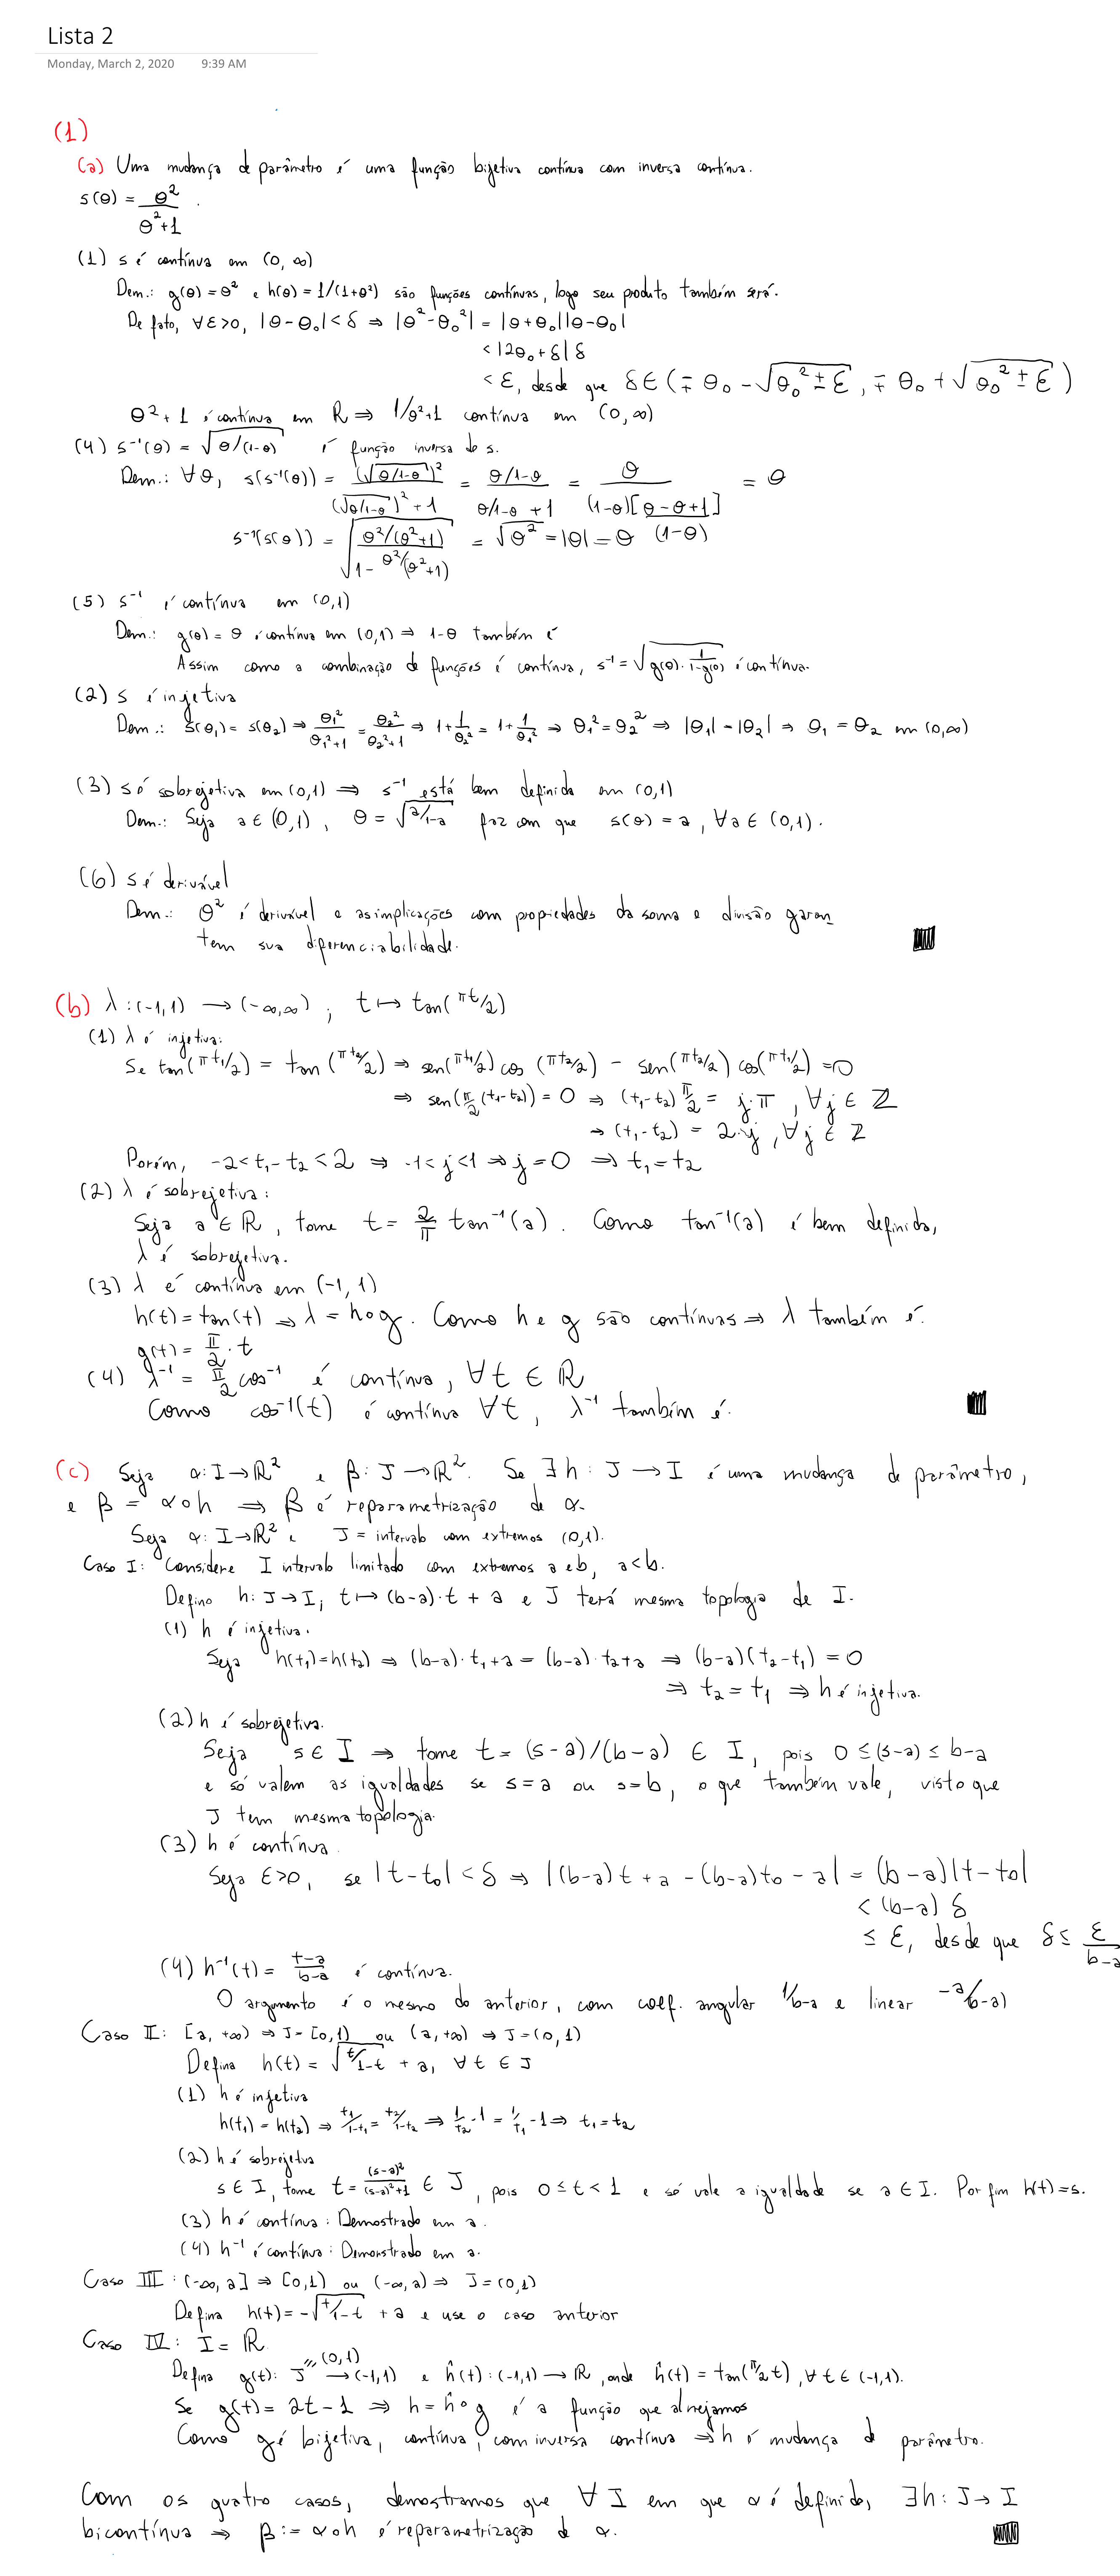 Lista 2
Monday, March 2, 2020 9:39 AM
(1)
(a) Uma mudança de parâmetro é uma função bijetiva contínua com inversa contínua.
s(θ) = θ²/(θ²+1) .
(1) s é contínua em (0, ∞)
Dem.: g(θ) = θ² e h(θ) = 1/(1+θ²) são funções contínuas, logo seu produto também será.
De fato, ∀ε>0, |θ-θ₀| < δ ⇒ |θ²-θ₀²| = |θ+θ₀||θ-θ₀|
< |2θ₀+δ| δ
< ε, desde que δ ∈ (∓θ₀ - √(θ₀² ± ε), ∓θ₀ + √(θ₀² ± ε))
θ²+1 é contínua em R ⇒ 1/θ²+1 contínua em (0, ∞)
(4) s⁻¹(θ) = √(θ/(1-θ)) é função inversa de s.
Dem.: ∀θ, s(s⁻¹(θ)) = (√(θ/1-θ))²/((√(θ/1-θ))²+1) = (θ/1-θ)/(θ/1-θ + 1) = θ/((1-θ)[θ-θ+1]/(1-θ)) = θ
s⁻¹(s(θ)) = √((θ²/(θ²+1))/(1-θ²/(θ²+1))) = √θ² = |θ| = θ
(5) s⁻¹ é contínua em (0,1)
Dem.: g(θ) = θ é contínua em (0,1) ⇒ 1-θ também é
Assim como a combinação de funções é contínua, s⁻¹ = √(g(θ) · 1/(1-g(θ))) é contínua.
(2) s é injetiva
Dem.: s(θ₁) = s(θ₂) ⇒ θ₁²/(θ₁²+1) = θ₂²/(θ₂²+1) ⇒ 1+1/θ₂² = 1+1/θ₁² ⇒ θ₁² = θ₂² ⇒ |θ₁| = |θ₂| ⇒ θ₁ = θ₂ em (0,∞)
(3) s é sobrejetiva em (0,1) ⇒ s⁻¹ está bem definida em (0,1)
Dem.: Seja a ∈ (0,1), θ = √(a/1-a) faz com que s(θ) = a, ∀a ∈ (0,1).
(6) s é derivável
Dem.: θ² é derivável e as implicações com propriedades da soma e divisão garan
tem sua diferenciabilidade.
(b) λ:(-1,1) → (-∞,∞) ; t ↦ tan(πt/2)
(1) λ é injetiva:
Se tan(πt₁/2) = tan(πt₂/2) ⇒ sen(πt₁/2) cos(πt₂/2) - sen(πt₂/2) cos(πt₁/2) = 0
⇒ sen(π/2 (t₁-t₂)) = 0 ⇒ (t₁-t₂) π/2 = j·π, ∀j ∈ Z
⇒ (t₁-t₂) = 2·j, ∀j ∈ Z
Porém, -2 < t₁-t₂ < 2 ⇒ -1 < j < 1 ⇒ j=0 ⇒ t₁=t₂
(2) λ é sobrejetiva:
Seja a ∈ ℝ, tome t = 2/π tan⁻¹(a). Como tan⁻¹(a) é bem definida,
λ é sobrejetiva.
(3) λ é contínua em (-1, 1)
h(t) = tan(t) ⇒ λ = h∘g. Como h e g são contínuas ⇒ λ também é.
g(t) = π/2 · t
(4) λ⁻¹ = π/2 cos⁻¹ é contínua, ∀t ∈ ℝ
Como cos⁻¹(t) é contínua ∀t, λ⁻¹ também é.
(c) Seja α: I → ℝ² e β: J → ℝ². Se ∃ h: J → I é uma mudança de parâmetro,
e β = α∘h ⇒ β é reparametrização de α.
Seja α: I → ℝ² e J = intervalo com extremos (0,1).
Caso I: Considere I intervalo limitado com extremos a e b, a<b.
Defino h: J → I, t ↦ (b-a)·t + a e J terá mesma topologia de I.
(1) h é injetiva.
Seja h(t₁)=h(t₂) ⇒ (b-a)·t₁+a = (b-a)·t₂+a ⇒ (b-a)(t₂-t₁) = 0
⇒ t₂ = t₁ ⇒ h é injetiva.
(2) h é sobrejetiva.
Seja s ∈ I ⇒ tome t = (s-a)/(b-a) ∈ I, pois 0 ≤ (s-a) ≤ b-a
e só valem as igualdades se s=a ou s=b, o que também vale, visto que
J tem mesma topologia.
(3) h é contínua
Seja ε>0, se |t-t₀| < δ ⇒ |(b-a)t + a - (b-a)t₀ - a| = (b-a)|t-t₀|
< (b-a) δ
≤ ε, desde que δ ≤ ε/b-a
(4) h⁻¹(t) = t-a/b-a é contínua.
O argumento é o mesmo do anterior, com coef. angular 1/b-a e linear -a/(b-a)
Caso II: [a, +∞) ⇒ J=[0,1) ou (a,+∞) ⇒ J=(0,1)
Defina h(t) = √(t/1-t) + a, ∀t ∈ J
(1) h é injetiva
h(t₁) = h(t₂) ⇒ t₁/1-t₁ = t₂/1-t₂ ⇒ 1/t₂ -1 = 1/t₁ -1 ⇒ t₁=t₂
(2) h é sobrejetiva
s ∈ I, tome t = (s-a)²/((s-a)²+1) ∈ J, pois 0 ≤ t < 1 e só vale a igualdade se a ∈ I. Por fim h(t)=s.
(3) h é contínua: Demostrado em a.
(4) h⁻¹ é contínua: Demonstrado em a.
Caso III: (-∞, a] ⇒ [0,1) ou (-∞, a) ⇒ J=(0,1)
Defina h(t) = -√(t/1-t) + a e use o caso anterior
Caso IV: I = ℝ
Defina g(t): J = (0,1) → (-1,1) e ĥ(t): (-1,1) → ℝ, onde ĥ(t) = tan(π/2 t), ∀t ∈ (-1,1).
Se g(t) = 2t-1 ⇒ h = ĥ∘g é a função que almejamos
Como g é bijetiva, contínua, com inversa contínua ⇒ h é mudança de parâmetro.
Com os quatro casos, demostramos que ∀ I em que α é definida, ∃h: J → I
bicontínua ⇒ β := α∘h é reparametrização de α.